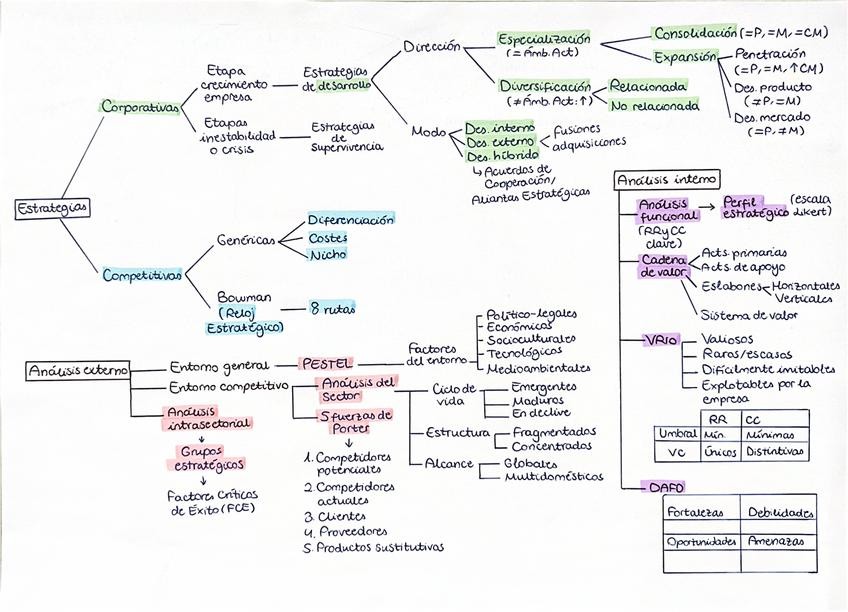 Estrategias
Corporativas
Etapa
crecimiento
empresa
Estrategias
de desarrollo
Dirección
Especialización
(=Ámb.Act)
Consolidación (=P,=M,=CM)
Expansión
Penetración
(=P,=M,↑CM)
Des. producto
(≠P,=M)
Des. mercado
(=P,≠M)
Diversificación
(≠Ámb.Act:↑)
Relacionada
No relacionada
Modo
Des. interno
Des. externo
Des. híbrido
Fusiones
adquisiciones
↳ Acuerdos de
Cooperación/
Aliantas Estratégicas
Etapas
inestabilidad
o crisis
Estrategias
de
Supervivencia
Competitivas
Genéricas
Diferenciación
Costes
Nicho
Bowman
(Reloj
Estratégico)
8 rutas
Análisis externo
Entorno general
PESTEL
Factores
del entorno
Político-legales
Económicos
Socioculturales
Tecnológicos
Medioambientales
Entorno competitivo
Análisis del
Sector
Ciclo de
vida
Emergentes
Maduros
En declive
Estructura
Fragmentados
Concentrados
Alcance
Globales
Multidomésticos
5 fuerzas de
Porter
1. Competidores
potenciales
2. Competidores
actuales
3. Clientes
4. Proveedores
5. Productos sustitutivos
Análisis
intrasectorial
Grupos
estratégicos
Factores Críticos
de Éxito (FCE)
Análisis interno
Análisis
funcional
(RR y CC
clave)
→ Perfil
estratégico
(escala
likert)
Cadena
de valor
Acts. primarias
Acts. de apoyo
Eslabones
Horizontales
Verticales
Sistema de valor
VRIO
Valiosos
Raros/escasos
Difícilmente imitables
Explotables por la
empresa
RR CC
Umbral Mín. Mínimas
VC Únicos Distintivas
DAFO
Fortalezas Debilidades
Oportunidades Amenazas